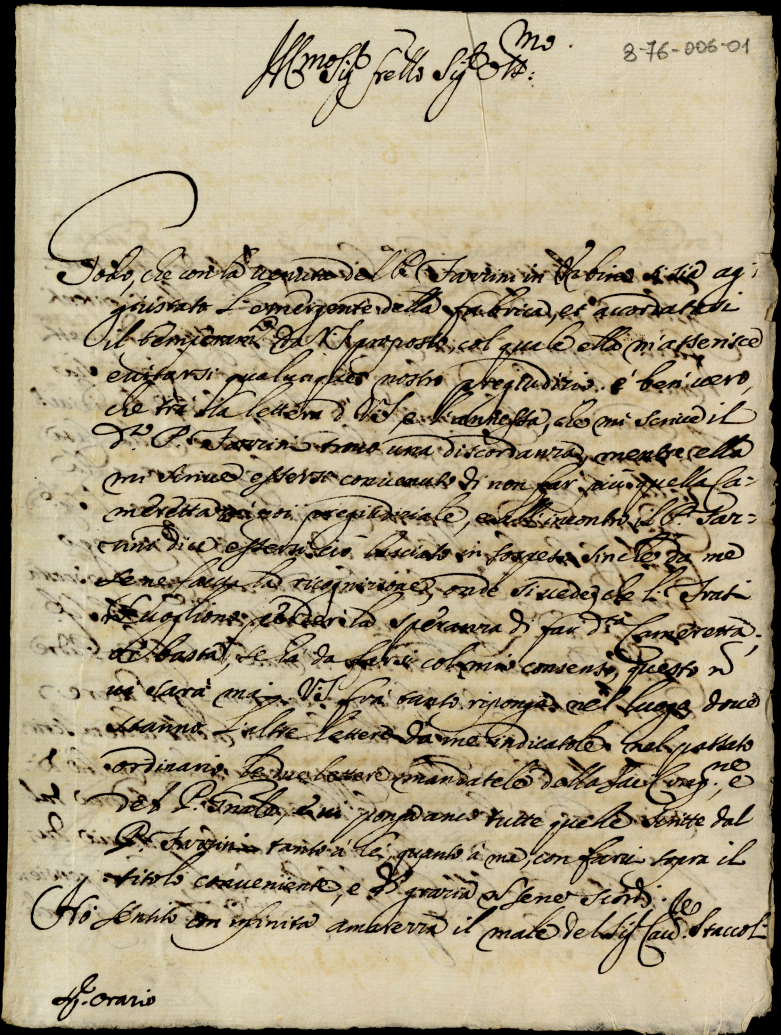 8-76-006-01
Ill.mo Sig.r frello Sig.r Oss.mo
Godo, che con la venuta del P. Farrini in Urbino si sia ag=
giustato l'emergente della fabrica, et acordatosi
il temperam.to da VS proposto, col quale ella m'asserisce
evitarsi qualunque nostro pregiudizio. è ben vero,
che trà la lettera di VS e l'annessa, che mi scrive il
d.to P. Farrini trovo una discordanza, mentre ella
mi scrive essersi convenuto di non far più quella Ca-
meretta à noi pregiudiziale, e all'incontro il P. Far-
rini dice essersi ciò lasciato in sospeso sin che da me
se ne faccia la ricognizione, onde si vede, che li Frati
vogliono perder la speranza di far d.ta Cameretta;
basta, se hà da farsi col mio consenso, questo n
vi sarà mai. VS frà tanto riponga nel luogo dove
stanno l'altre lettere da me indicatole nel passato
ordinario le due lettere mandatele della Sac. Cong.ne, e
del P. Gnale, e vi ponga anco tutte quelle scritte dal
P. Farrini tanto à lei, quanto à me, con farvi sopra il
titolo conveniente, e di grazia n se ne scordi.
Hò sentito con infinita amarezza il male del Sig. Cav.re Staccol:
S.r Orazio